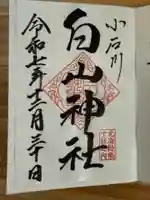 小石川
白山神社
令和七年十二月三十日